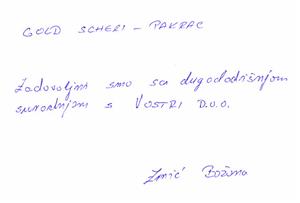 GOLD SCHERI - PAKRAC
Zadovoljni smo sa dugogodišnjom
suradnjom s VOSTRI D.O.O.
Zmić Božena